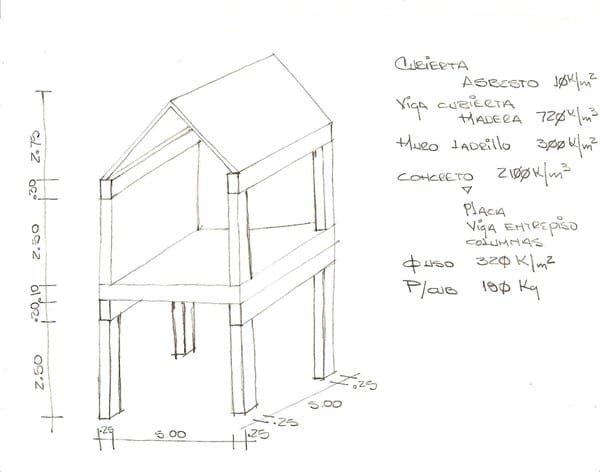 CUBIERTA
ASBESTO 10K/m²
VIGA CUBIERTA
MADERA 720K/m³
MURO LADRILLO 300K/m²
CONCRETO 2100K/m³
PLACA
VIGA ENTREPISO
COLUMNAS
Φ USO 320 K/m²
P/CUB 100 Kg
2.75
.30
2.50
.10
.30
2.50
.25
5.00
.25
.25
5.00
.25